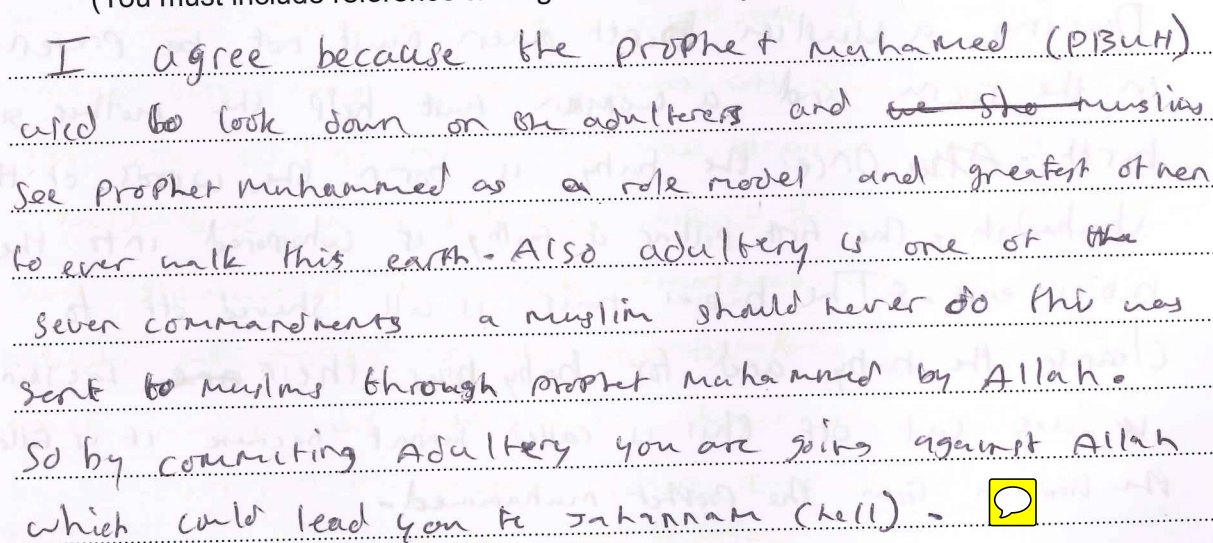 I agree because the prophet muhamed (PBUH)
used to look down on adulterers and muslims
see prophet muhammed as a role model and greatest of men
to ever walk this earth. Also adultery is one of the
seven commandments a muslim should never do this was
sent to muslms through prophet muhammed by Allah.
So by commiting Adultery you are going against Allah
which could lead you to Jahannam (hell).